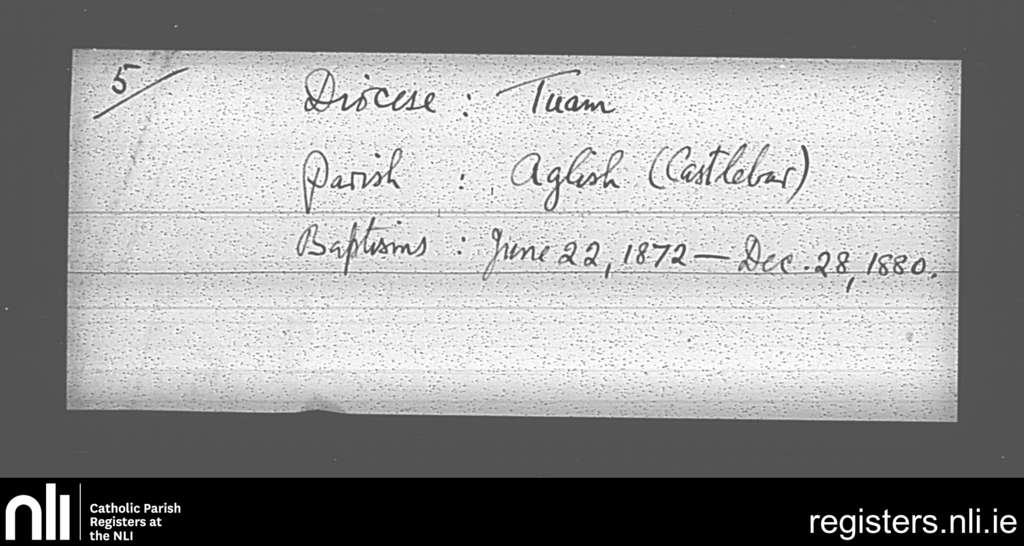 5/
Diocese : Tuam
Parish : Aglish (Castlebar)
Baptisms : June 22, 1872 — Dec. 28, 1880.
nli
Catholic Parish
Registers at
the NLI
registers.nli.ie